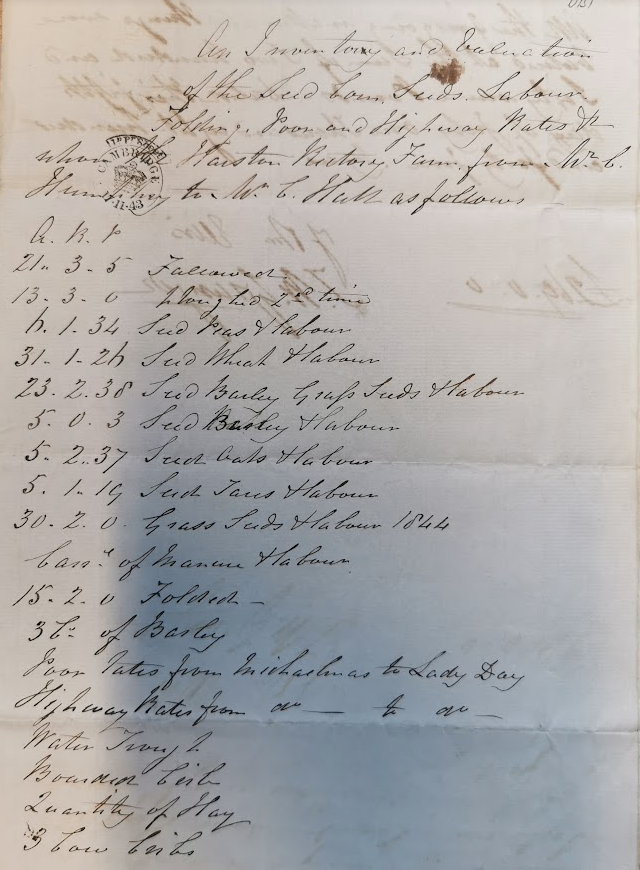 An Inventory and Valuation
of the Seed Corn, Seeds, Labour,
Folding, Poor and Highway Rates &
upon Harston Rectory Farm, from Mr. C.
to Mr. C. Hall as follows
A. R. P
21. 3. 5 Fallowed
13. 3. 0 ploughed 2nd time
6. 1. 34 Seed Peas & Labour
31. 1. 26 Seed Wheat & Labour
23. 2. 38 Seed Barley Grass Seeds & Labour
5. 0. 3 Seed Barley & Labour
5. 2. 37 Seed Oats & Labour
5. 1. 19 Seed Tares & Labour
30. 2. 0. Grass Seeds & Labour 1844
of Manure & Labour
15. 2. 0 Folded –
of Barley
Poor Rates from Michaelmas to Lady Day
Highway Rates from do — to do —
Water Trough
Boarded Crib
Quantity of Hay
3 Cow Cribs
CAMBRIDGE